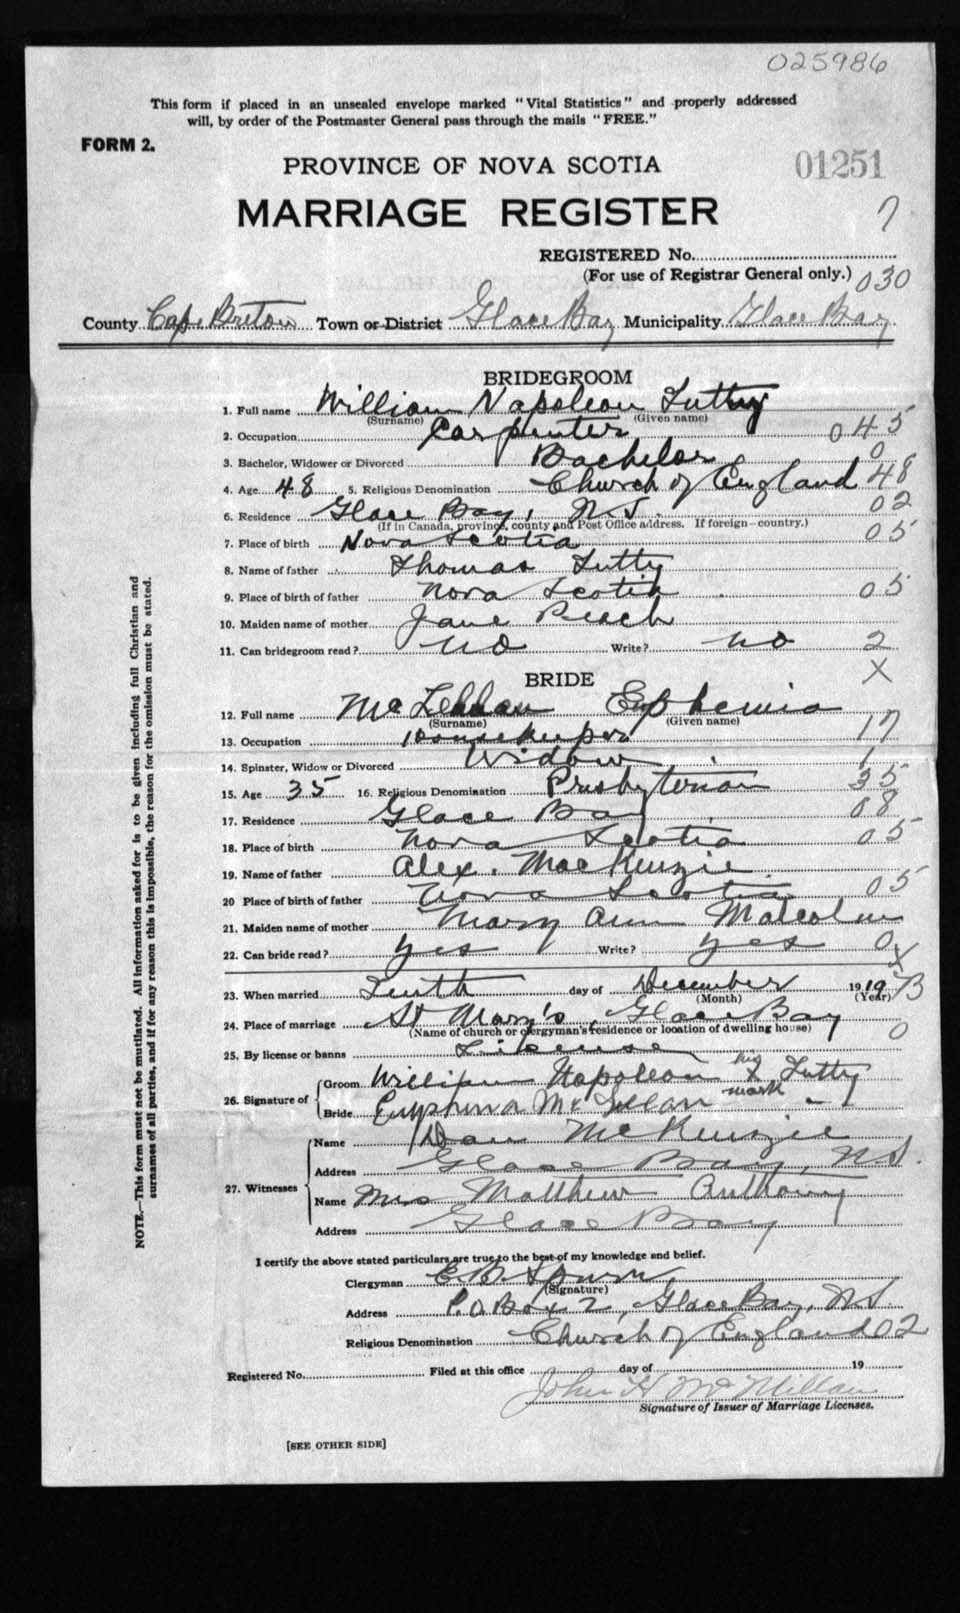 025986
This form if placed in an unsealed envelope marked "Vital Statistics" and properly addressed
will, by order of the Postmaster General pass through the mails "FREE."
FORM 2.
PROVINCE OF NOVA SCOTIA
01251
MARRIAGE REGISTER
7
REGISTERED No.
(For use of Registrar General only.)
030
County Cape Breton Town or District Glace Bay Municipality Glace Bay
BRIDEGROOM
1. Full name William Napoleon Tutty
(Surname) (Given name)
2. Occupation Carpenter 045
3. Bachelor, Widower or Divorced Bachelor 0
4. Age 48 5. Religious Denomination Church of England 48
6. Residence Glace Bay, N.S. 02
(If in Canada, province, county and Post Office address. If foreign—country.)
7. Place of birth Nova Scotia 05
8. Name of father Thomas Tutty
9. Place of birth of father Nova Scotia 05
10. Maiden name of mother Jane Peach
11. Can bridegroom read? no Write? no 2
X
BRIDE
12. Full name McLellan Euphemia
(Surname) (Given name)
13. Occupation Housekeeper 17
14. Spinster, Widow or Divorced Widow 1
15. Age 35 16. Religious Denomination Presbyterian 35
17. Residence Glace Bay 08
18. Place of birth Nova Scotia 05
19. Name of father Alex. MacKenzie
20 Place of birth of father Nova Scotia 05
21. Maiden name of mother Mary Ann Malcolm
22. Can bride read? yes Write? yes 0
X
23. When married Tenth day of December 1919 B
(Month) (Year)
24. Place of marriage St Mary's, Glace Bay
(Name of church or clergyman's residence or location of dwelling house) 0
25. By license or banns License
26. Signature of
Groom William Napoleon his X mark Tutty
Bride Euphema McLellan
27. Witnesses
Name Dan McKenzie
Address Glace Bay, N.S.
Name Mrs Matthew Anthony
Address Glace Bay
I certify the above stated particulars are true to the best of my knowledge and belief.
Clergyman E.B. Spurr
(Signature)
Address P.O Box 2, Glace Bay, N.S.
Religious Denomination Church of England 02
Registered No. Filed at this office day of 19
John H McMillan
Signature of Issuer of Marriage Licenses.
[SEE OTHER SIDE]
NOTE.—This form must not be mutilated. All information asked for is to be given including full Christian and
surnames of all parties, and if for any reason this is impossible, the reason for the omission must be stated.